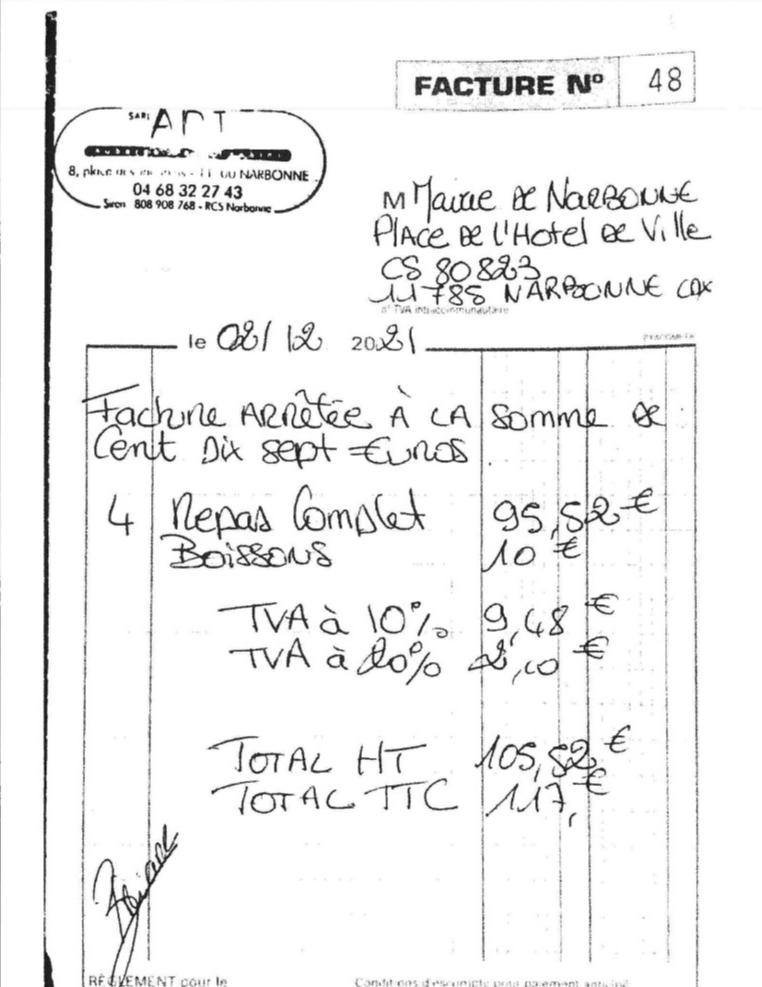 FACTURE N° 48
SARL ART
8, place des - 11 00 NARBONNE
04 68 32 27 43
Siren 808 908 768 - RCS Narbonne
M Mairie de NARBONNE
PLACE DE L'HOTEL DE VILLE
CS 80823
11785 NARBONNE CDX
n° TVA intracommunautaire
le 02/12 2021
EXACOMPTA
Facture ARRêtée À LA somme de
Cent Dix sept Euros
4 Repas Complet 95,52 €
BOISSONS 10 €
TVA à 10% 9,48 €
TVA à 20% 2,00 €
TOTAL HT 105,52 €
TOTAL TTC 117, €
RÈGLEMENT pour le
Conditions d'escompte pour paiement anticipé